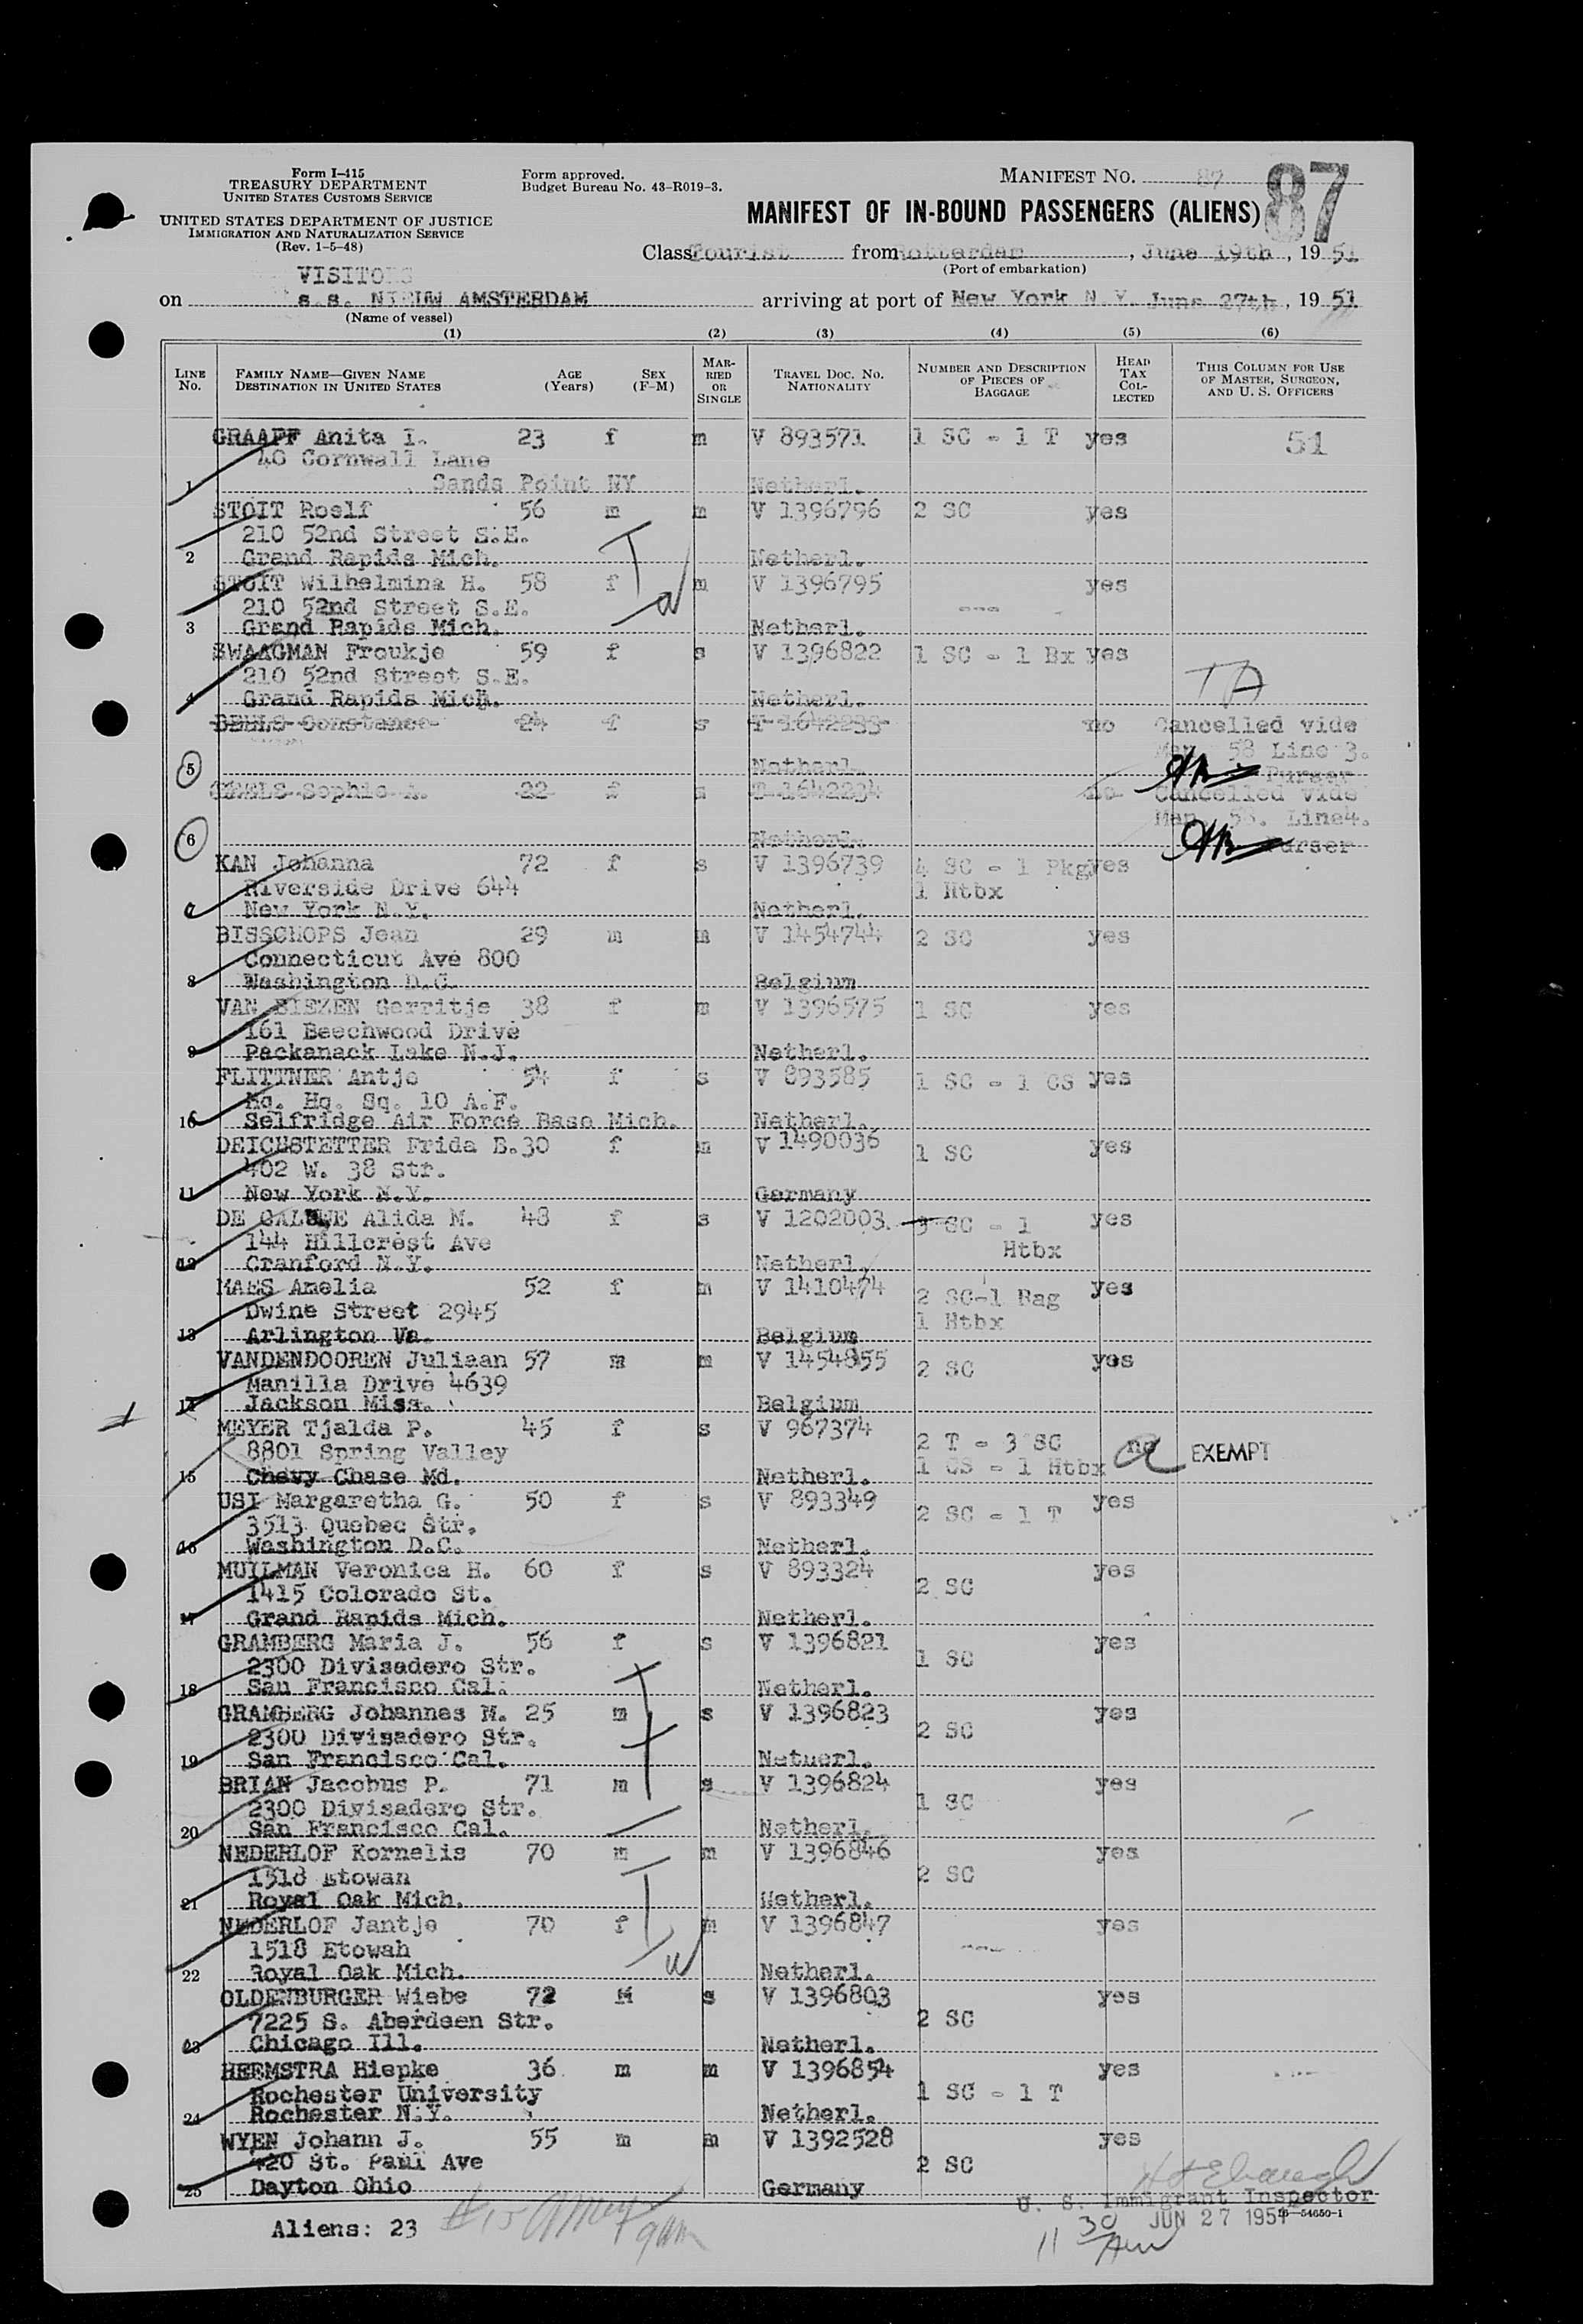 Form I-415
TREASURY DEPARTMENT
UNITED STATES CUSTOMS SERVICE
UNITED STATES DEPARTMENT OF JUSTICE
IMMIGRATION AND NATURALIZATION SERVICE
(Rev. 1-5-48)
Form approved.
Budget Bureau No. 43-R019-3.
MANIFEST NO. 87
87
MANIFEST OF IN-BOUND PASSENGERS (ALIENS)
Class Tourist from Rotterdam, June 19th, 19 51
(Port of embarkation)
VISITORS
on s.s. NIEUW AMSTERDAM arriving at port of New York N.Y. June 27th, 19 51
(Name of vessel)
(1) (2) (3) (4) (5) (6)
LINE No. FAMILY NAME—GIVEN NAME DESTINATION IN UNITED STATES AGE (Years) SEX (F-M) MARRIED OR SINGLE TRAVEL DOC. NO. NATIONALITY NUMBER AND DESCRIPTION OF PIECES OF BAGGAGE HEAD TAX COLLECTED THIS COLUMN FOR USE OF MASTER, SURGEON, AND U. S. OFFICERS
GRAAFF Anita I. 23 f m V 893571 1 SC - 1 T yes 51
48 Cornwall Lane
1 Sands Point NY Netherl.
STOIT Roelf 56 m m V 1396796 2 SC yes
210 52nd Street S.E.
2 Grand Rapids Mich. Netherl.
STOIT Wilhelmina H. 58 f m V 1396795 --- yes
210 52nd Street S.E.
3 Grand Rapids Mich. Netherl.
SWAAGMAN Froukje 59 f s V 1396822 1 SC - 1 Bx yes
210 52nd Street S.E. TA
4 Grand Rapids Mich. Netherl.
Constance 24 f s T 1642233 no Cancelled vide
Man. 58 Line 3.
5 Netherl. Purser
Sophie A. 22 f s T 1642234 no Cancelled vide
Man. 58. Line4.
6 Netherl. Purser
KAN Johanna 72 f s V 1396739 4 SC - 1 Pkg yes
Riverside Drive 644 1 Htbx
7 New York N.Y. Netherl.
BISSCHOPS Jean 29 m m V 1454744 2 SC yes
Connecticut Ave 800
8 Washington D.C. Belgium
VAN BIEZEN Gerritje 38 f m V 1396575 1 SC yes
161 Beechwood Drive
9 Packanack Lake N.J. Netherl.
FLITTNER Antje 54 f s V 893585 1 SC - 1 CS yes
Hq. Hq. Sq. 10 A.F.
10 Selfridge Air Force Base Mich. Netherl.
DEICHSTETTER Frida B. 30 f m V 1490036 1 SC yes
402 W. 38 Str.
11 New York N.Y. Germany
DE CALUWE Alida M. 48 f s V 1202003 3 SC - 1 yes
144 Hillcrest Ave Htbx
12 Cranford N.Y. Netherl.
MAES Amelia 52 f m V 1410474 2 SC-1 Bag yes
Dwine Street 2945 1 Htbx
13 Arlington Va. Belgium
VANDENDOOREN Juliaan 57 m m V 1454855 2 SC yes
Manilla Drive 4639
14 Jackson Miss. Belgium
MEYER Tjalda P. 45 f s V 967374 2 T - 3 SC no EXEMPT
8801 Spring Valley 1 CS - 1 Htbx
15 Chevy Chase Md. Netherl.
USI Margaretha G. 50 f s V 893349 2 SC - 1 T yes
3513 Quebec Str.
16 Washington D.C. Netherl.
MUILMAN Veronica H. 60 f s V 893324 2 SC yes
1415 Colorado St.
17 Grand Rapids Mich. Netherl.
GRAMBERG Maria J. 56 f s V 1396821 1 SC yes
2300 Divisadero Str.
18 San Francisco Cal. Netherl.
GRAMBERG Johannes M. 25 m s V 1396823 2 SC yes
2300 Divisadero Str.
19 San Francisco Cal. Netherl.
BRIAN Jacobus P. 71 m s V 1396824 1 SC yes
2300 Divisadero Str.
20 San Francisco Cal. Netherl.
NEDERLOF Kornelis 70 m m V 1396846 2 SC yes
1518 Etowan
21 Royal Oak Mich. Netherl.
NEDERLOF Jantje 70 f m V 1396847 --- yes
1518 Etowah
22 Royal Oak Mich. Netherl.
OLDENBURGER Wiebe 72 M s V 1396803 2 SC yes
7225 S. Aberdeen Str.
23 Chicago Ill. Netherl.
HEEMSTRA Hiepke 36 m m V 1396854 1 SC - 1 T yes
Rochester University
24 Rochester N.Y. Netherl.
WYEN Johann J. 55 m m V 1392528 2 SC yes
420 St. Paul Ave
25 Dayton Ohio Germany
U. S. Immigrant Inspector
Aliens: 23 JUN 27 1951 16—54650-1
11 30 AM